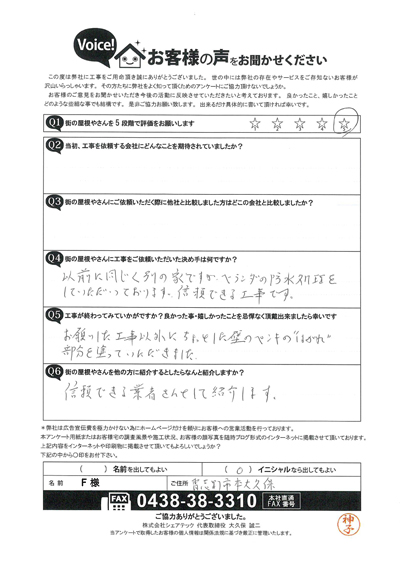 Voice!
お客様の声をお聞かせください
この度は弊社に工事をご用命頂き誠にありがとうございました。世の中には弊社の存在やサービスをご存知ないお客様が
沢山いらっしゃいます。その方たちに弊社をよく知って頂くためのアンケートにご協力頂けないでしょうか。
お客様のご意見をお聞かせいただき今後の活動に反映させていただきたいと考えております。良かったこと、嬉しかったこと
どのような些細な事でも結構です。是非ご協力お願い致します。出来るだけ具体的に書いて頂ければ幸いです。
Q1 街の屋根やさんを5段階で評価をお願いします ☆ ☆ ☆ ☆ ☆
Q2 当初、工事を依頼する会社にどんなことを期待されていましたか?
Q3 街の屋根やさんにご依頼いただく際に他社と比較しました方はどこの会社と比較しましたか?
Q4 街の屋根やさんに工事をご依頼いただいた決め手は何ですか?
以前に同じく別の家ですが、ベランダの防水
をしていただいております。信頼できる工事です。
Q5 工事が終わってみていかがですか?良かった事・嬉しかったことを忌憚なく頂戴出来ましたら幸いです
お願いした工事以外にちょっとした壁のペンキの"はがれ"
部分を塗っていただきました
Q6 街の屋根やさんを他の方に紹介するとしたらなんと紹介しますか?
信頼できる業者さんとして紹介します。
*弊社は広告宣伝費を極力かけない為にホームページだけを頼りにお客様への営業活動を行っております。
本アンケート用紙またはお客様宅の調査風景や施工状況、お客様の顔写真を随時ブログ形式のインターネットに掲載させて頂いております。
上記内容をインターネットや印刷物に掲載させて頂いてもよろしいでしょうか?
下記の中から〇印をお付下さい。
( ) 名前を出してもよい ( 〇 ) イニシャルなら出してもよい
名 前 F 様 ご住所 習志野市本大久保
FAX 0438-38-3310 本社直通 FAX番号
ご協力ありがとうございました。
株式会社シェアテック 代表取締役 大久保 誠二
当アンケートで取得したお客様の個人情報は関係法規に基づき厳正に管理いたします。
神子